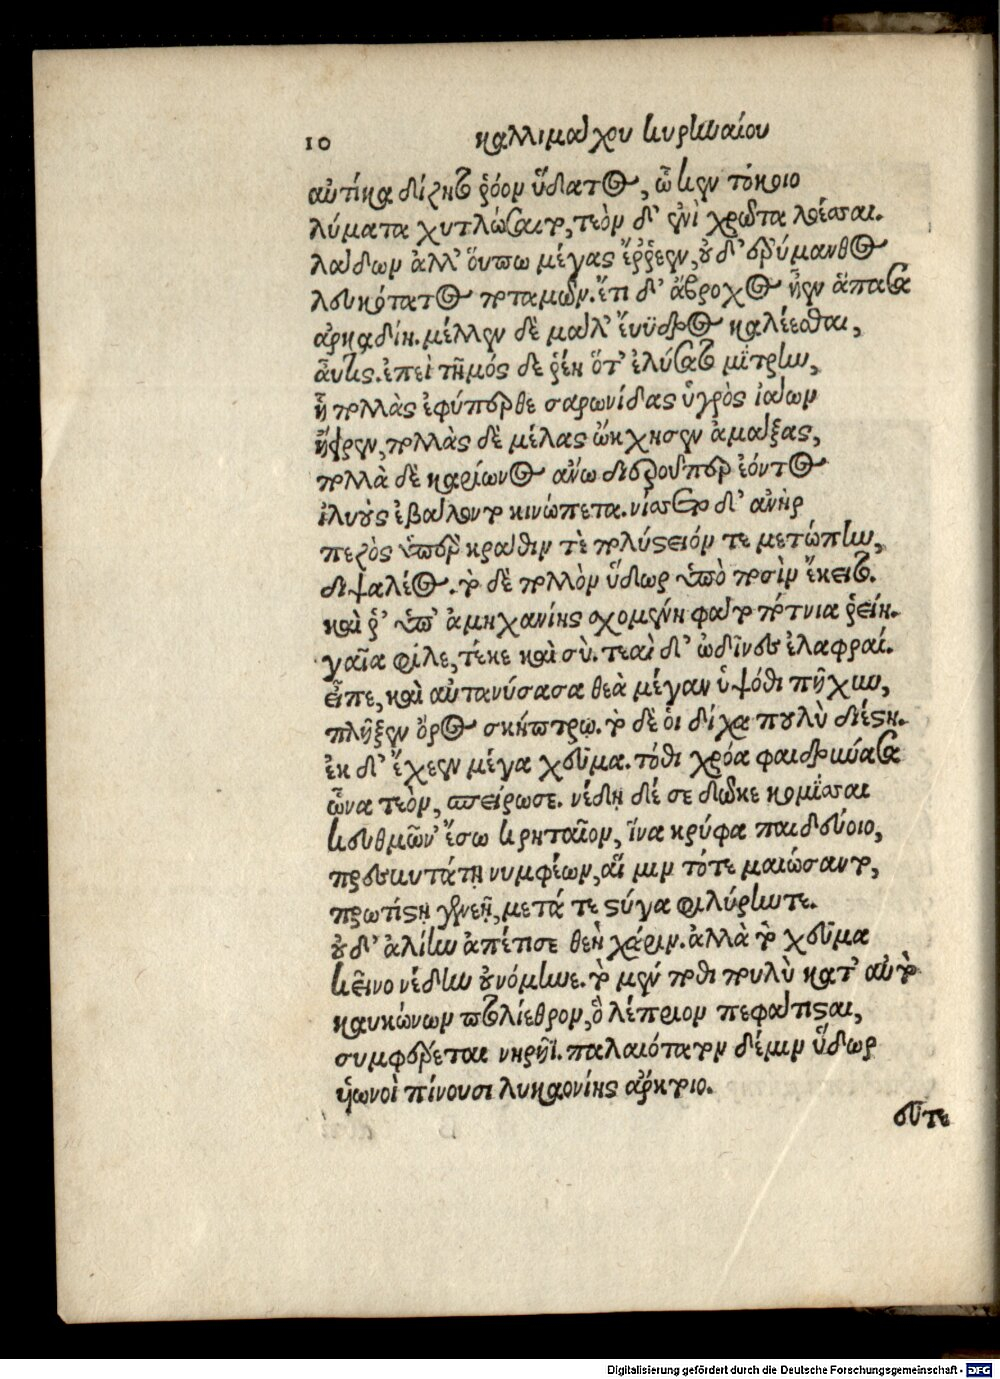 10 καλλιμάχου κυρηναίου
αὐτίκα δίζητο ῥόον ὕδατος, ᾧ κεν τόκοιο
λύματα χυτλώσαιτο, τεὸν δ' ἐνὶ χρῶτα λοέσσαι.
λάδων ἀλλ' οὔπω μέγας ἔῤῥεεν, οὐδ' ἐρύμανθος
λευκότατος ποταμῶν. ἔτι δ' ἄβροχος ἦεν ἅπασα
ἀρκαδίη. μέλλεν δὲ μάλ' εὔϋδρος καλέεσθαι,
αὖτις. ἐπεὶ τῆμός δε ῥέη ὅτ' ἐλύσατο μίτρην,
ἦ πολλὰς ἐφύπερθε σαρωνίδας ὑγρὸς ἰάων
ἤειρεν, πολλὰς δὲ μέλας ὤκχησεν ἁμάξας,
πολλὰ δὲ καρίωνος ἄνω διεροῦ περ ἐόντος
ἰλυοὺς ἐβάλοντο κινώπετα. νίσσετο δ' ἀνὴρ
πεζὸς ὑπὲρ κράθιν τὲ πολύστειόν τε μετώπην,
διψαλέος. τὸ δὲ πολλὸν ὕδωρ ὑπὸ ποσὶν ἔκειτο.
καὶ ῥ' ὑπ' ἀμηχανίης σχομένη φάτο πότνια ῥείη.
γαῖα φίλε, τέκε καὶ σὺ. τεαὶ δ' ὠδῖνες ἐλαφραί.
εἶπε, καὶ αὐτανύσασα θεὰ μέγαν ὑψόθι πῆχυν,
πλῆξεν ὄρος σκήπτρῳ. τὸ δὲ οἱ δίχα πουλὺ διέστη.
ἐκ δ' ἔχεεν μέγα χεῦμα. τόθι χρόα φαιδρύνασα
ὦνα τεὸν, σπείρωσε. νέδῃ δέ σε δῶκε κομίσσαι
κευθμῶν' ἔσω κρηταῖον, ἵνα κρύφα παιδεύοιο,
πρεσβυτάτῃ νυμφέων, αἵ μιν τότε μαιώσαντο,
πρωτίστῃ γενεῇ, μετά τε στύγα φιλύρην τε.
οὐδ' ἁλίην ἀπέτισε θεὴ χάριν. ἀλλὰ τὸ χεῦμα
κεῖνο νέδην οὐνόμηνε. τὸ μέν ποθι πουλὺ κατ' αὐτὸ
καυκώνων πτολίεθρον, ὃ λέπριον πεφάτισται,
συμφέρεται νηρῆϊ. παλαιότατον δέ μιν ὕδωρ
υἱωνοὶ πίνουσι λυκαονίης ἄρκτοιο.
εὖτε
Digitalisierung gefördert durch die Deutsche Forschungsgemeinschaft - DFG